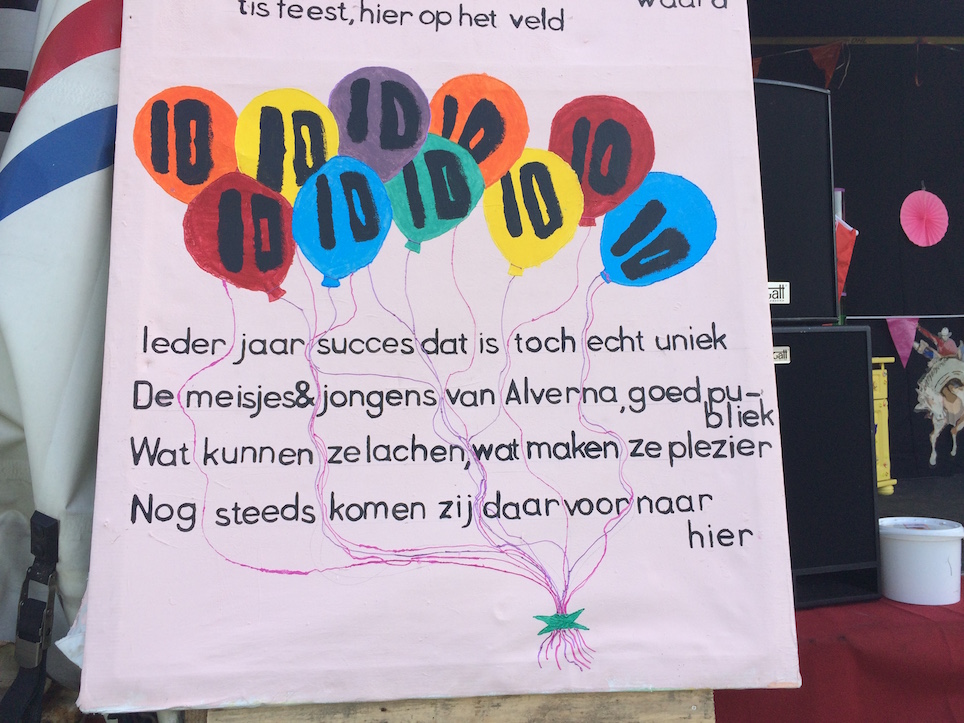 waard
tis feest, hier op het veld
10 10 10 10 10
10 10 10 10 10
Ieder jaar succes dat is toch echt uniek
De meisjes & jongens van Alverna, goed pu-
bliek
Wat kunnen ze lachen, wat maken ze plezier
Nog steeds komen zij daar voor naar
hier